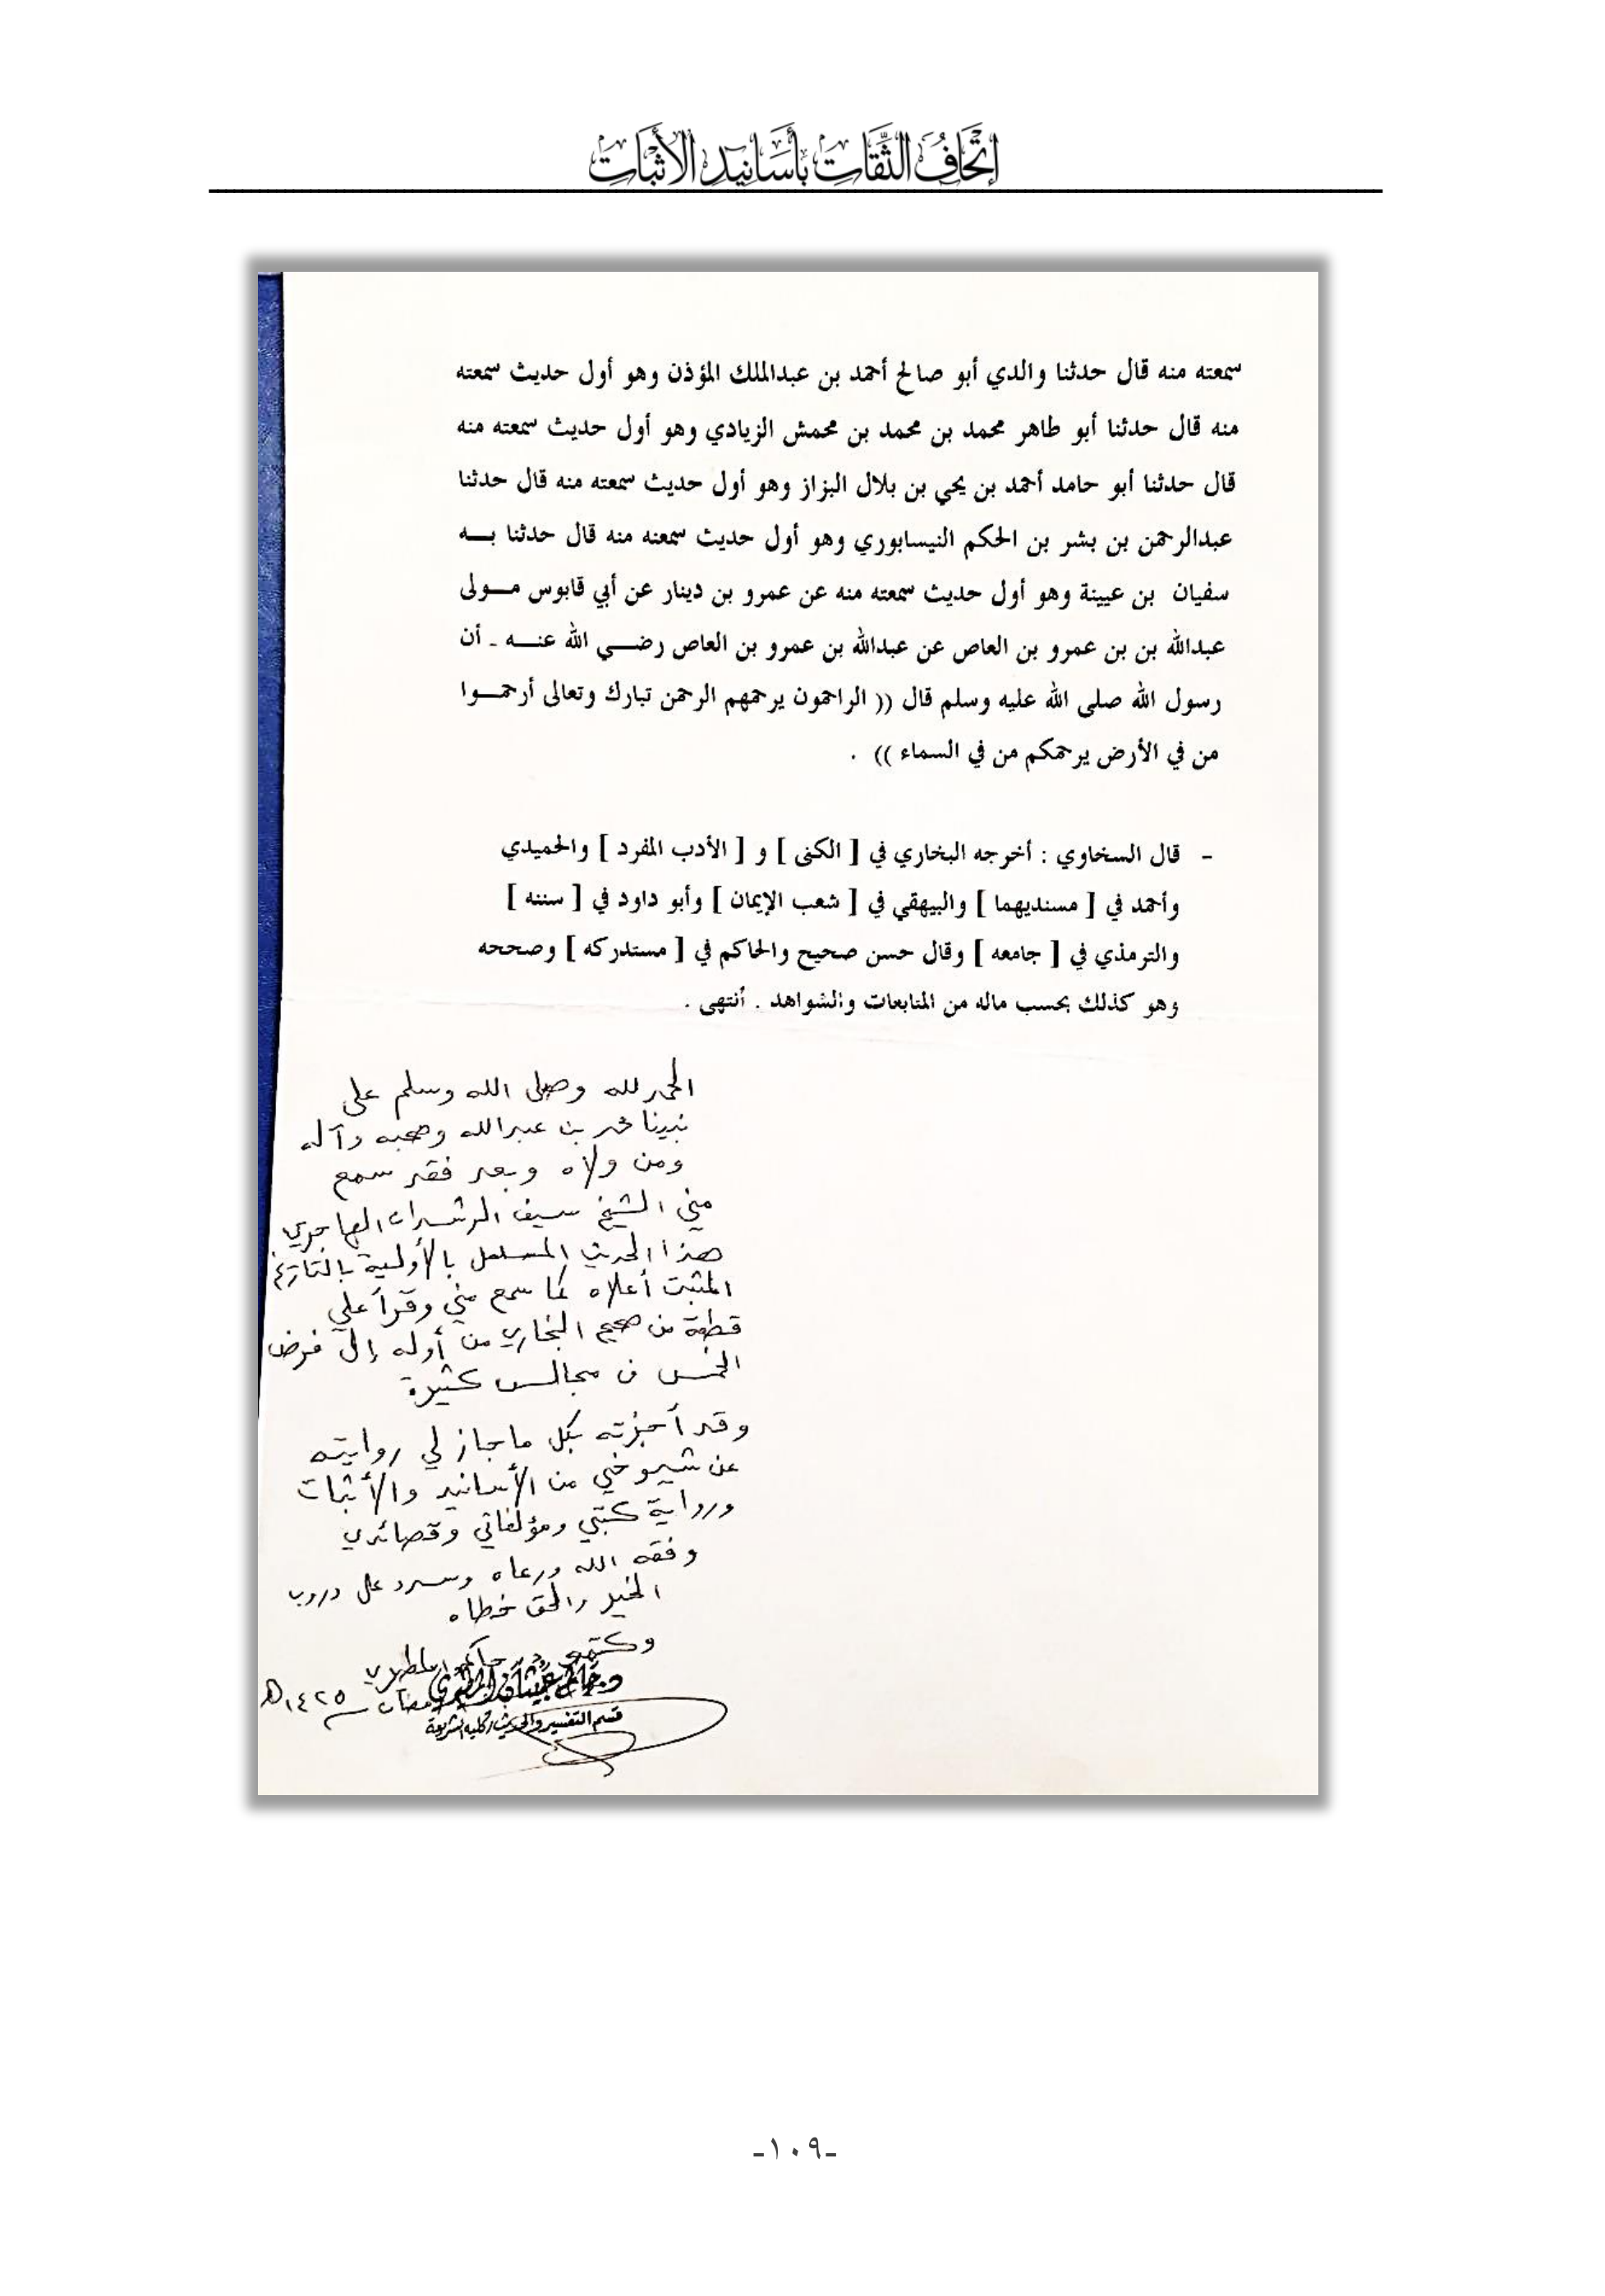 إتحاف الثقات بأسانيد الأثبات
سمعته منه قال حدثنا والدي أبو صالح أحمد بن عبدالملك المؤذن وهو أول حديث سمعته
منه قال حدثنا أبو طاهر محمد بن محمد بن محمش الزيادي وهو أول حديث سمعته منه
قال حدثنا أبو حامد أحمد بن يحي بن بلال البزاز وهو أول حديث سمعته منه قال حدثنا
عبدالرحمن بن بشر بن الحكم النيسابوري وهو أول حديث سمعته منه قال حدثنا بـــه
سفيان بن عيينة وهو أول حديث سمعته منه عن عمرو بن دينار عن أبي قابوس مـــولى
عبدالله بن بن عمرو بن العاص عن عبدالله بن عمرو بن العاص رضـــي الله عنـــه ـ أن
رسول الله صلى الله عليه وسلم قال (( الراحمون يرحمهم الرحمن تبارك وتعالى أرحمـــوا
من في الأرض يرحمكم من في السماء )) .
- قال السخاوي : أخرجه البخاري في [ الكنى ] و [ الأدب المفرد ] والحميدي
وأحمد في [ مسنديهما ] والبيهقي في [ شعب الإيمان ] وأبو داود في [ سننه ]
والترمذي في [ جامعه ] وقال حسن صحيح والحاكم في [ مستدركه ] وصححه
وهو كذلك بحسب ماله من المتابعات والشواهد . أنتهى .
الحمد لله وصلى الله وسلم على
نبينا محمد بن عبدالله وصحبه وآله
ومن ولاه وبعد فقد سمع
مني الشيخ سيف الرشدان الهاجري
هذا الحديث المسلسل بالأولية بالتاريخ
المثبت أعلاه كما سمع مني وقرأ علي
قطعة من صحيح البخاري من أوله إلى فرض
الخمس في مجالس كثيرة
وقد أجزته بكل ما جاز لي روايته
عن شيوخي من الأسانيد والأثبات
ورواية كتبي ومؤلفاتي وقصائدي
وفقه الله ورعاه وسدد على دروب
الخير والحق خطاه
وكتبه د. حاكم المطيري
د. حاكم عبيسان المطيري
رمضان ١٤٢٥ هـ
قسم التفسير والحديث / كلية الشريعة
-١٠٩-